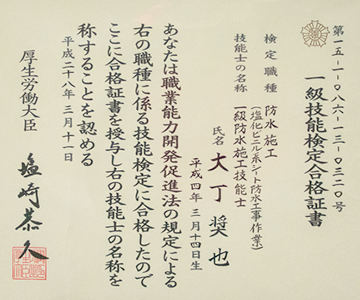 第一五-一-〇八六-一三-〇三一〇号
一級技能検定合格証書
検定職種 防水施工
(塩化ビニル系シート防水工事作業)
技能士の名称 一級防水施工技能士
氏名 大丁 奨也
平成四年三月十四日生
あなたは職業能力開発促進法の規定による
右の職種に係る技能検定に合格したので
ここに合格証書を授与し右の技能士の名称を
称することを認める
平成二十八年三月十一日
厚生労働大臣 塩崎恭久